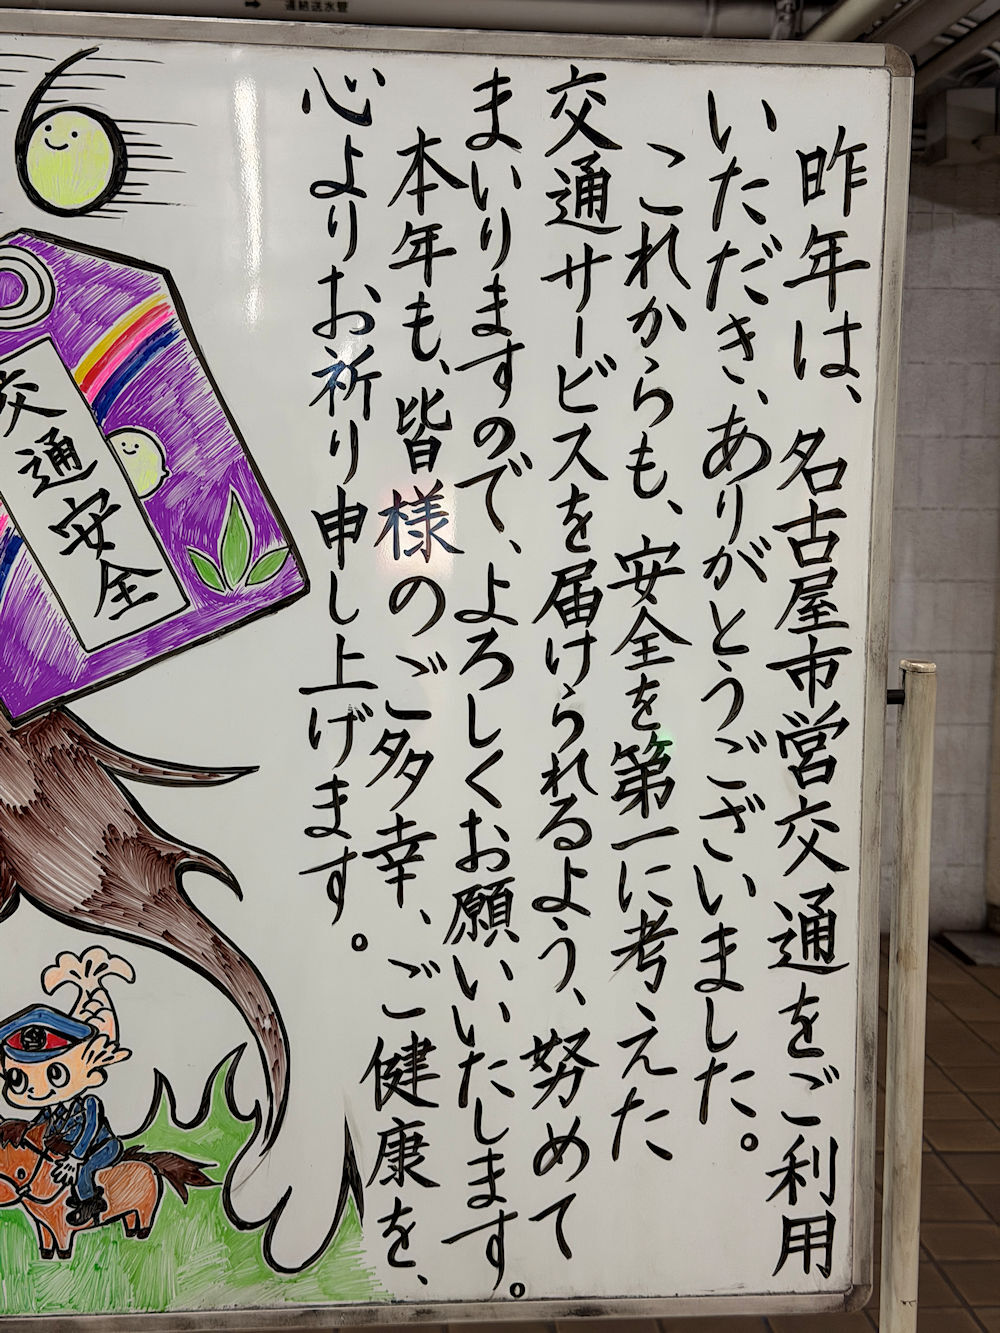 連結送水管
昨年は、名古屋市営交通をご利用
いただき、ありがとうございました。
これからも、安全を第一に考えた
交通サービスを届けられるよう、努めて
まいりますので、よろしくお願いいたします。
本年も、皆様のご多幸、ご健康を、
心よりお祈り申し上げます。
交通安全